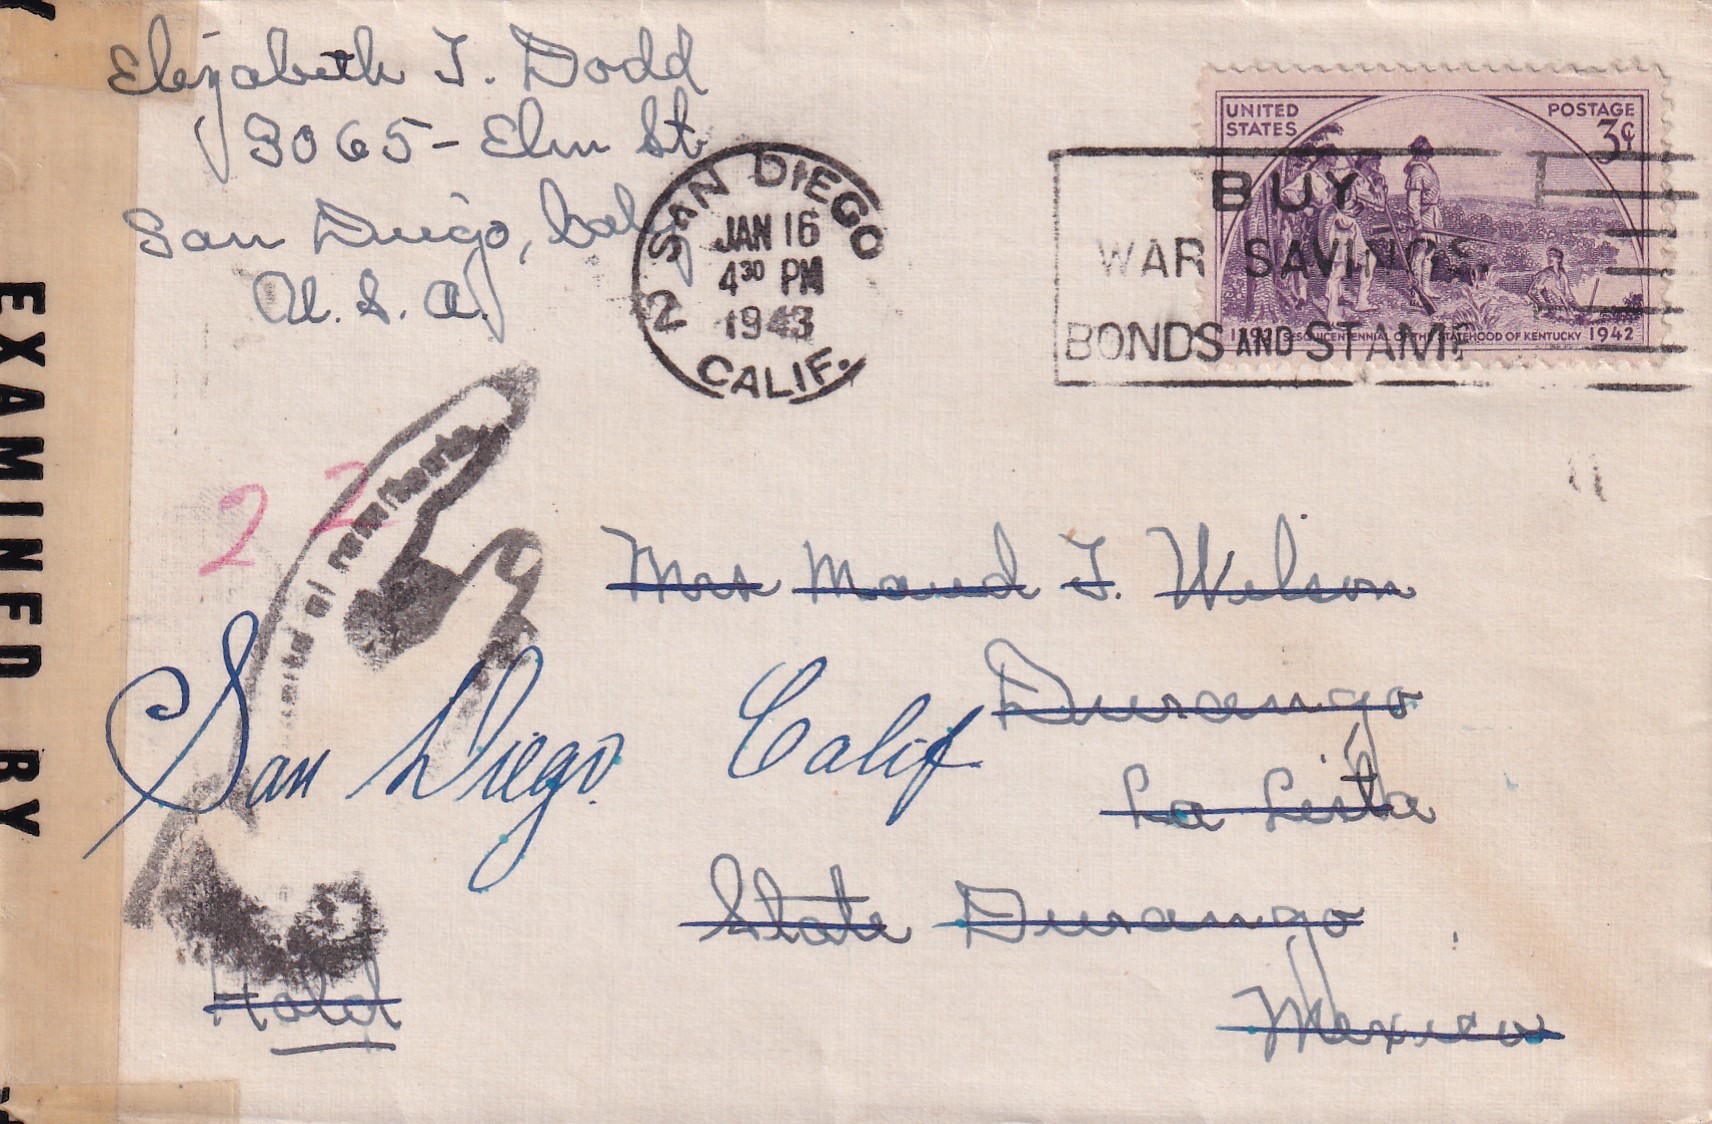 Elizabeth T. Dodd
3065 - Elm St
San Diego, Calif
U. S. A.
SAN DIEGO
JAN 16
4 30 PM
1943
2 CALIF.
UNITED STATES
POSTAGE
3¢
1792 SESQUICENTENNIAL OF THE STATEHOOD OF KENTUCKY 1942
BUY
WAR SAVINGS
BONDS AND STAMPS
EXAMINED BY
22
al remitente
Mrs Maud T. Wilson
Durango
San Diego Calif
La Lista
State Durango
Hold
Mexico